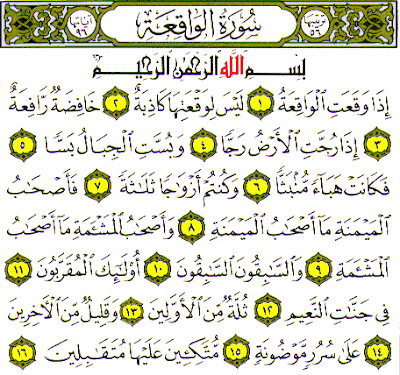 ترتيبها ٥٦ سورة الواقعة آياتها ٩٦
بسم الله الرحمن الرحيم
إِذَا وَقَعَتِ الْوَاقِعَةُ ١ لَيْسَ لِوَقْعَتِهَا كَاذِبَةٌ ٢ خَافِضَةٌ رَّافِعَةٌ
٣ إِذَا رُجَّتِ الْأَرْضُ رَجًّا ٤ وَبُسَّتِ الْجِبَالُ بَسًّا ٥
فَكَانَتْ هَبَاءً مُّنبَثًّا ٦ وَكُنتُمْ أَزْوَاجًا ثَلَاثَةً ٧ فَأَصْحَابُ
الْمَيْمَنَةِ مَا أَصْحَابُ الْمَيْمَنَةِ ٨ وَأَصْحَابُ الْمَشْأَمَةِ مَا أَصْحَابُ
الْمَشْأَمَةِ ٩ وَالسَّابِقُونَ السَّابِقُونَ ١٠ أُولَٰئِكَ الْمُقَرَّبُونَ ١١
فِي جَنَّاتِ النَّعِيمِ ١٢ ثُلَّةٌ مِّنَ الْأَوَّلِينَ ١٣ وَقَلِيلٌ مِّنَ الْآخِرِينَ
١٤ عَلَىٰ سُرُرٍ مَّوْضُونَةٍ ١٥ مُّتَّكِئِينَ عَلَيْهَا مُتَقَابِلِينَ ١٦